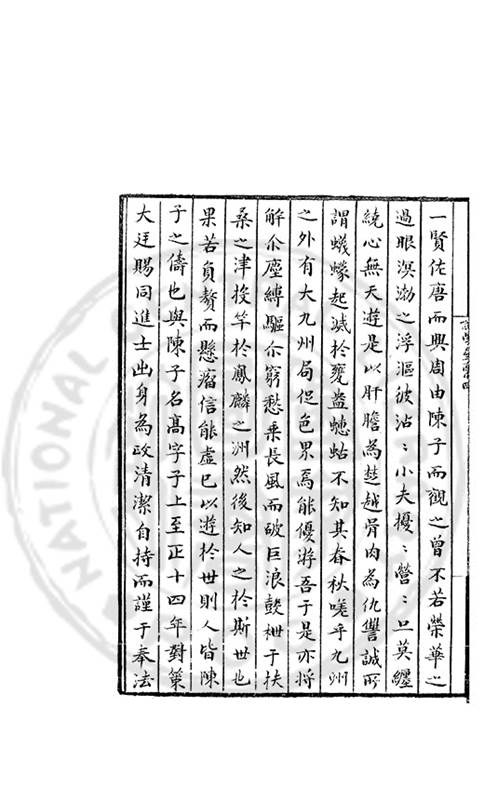 一賢佐唐而興周由陳子而觀之曾不若榮華之
過眼溟渤之浮漚彼沾〻小夫擾〻營〻上莫纏
繞心無天遊是以肝膽為楚越骨肉為仇讐誠所
謂蠛蠓起滅於甕盎蟪蛄不知其春秋嗟乎九州
之外有大九州局促色界焉能優游吾于是亦将
解尒塵縛驅尒窮愁乗長風而破巨浪鼓枻于扶
桑之津投竿於鳳麟之洲然後知人之於斯世也
果若負贅而懸瘤信能虛已以遊於世則人皆陳
子之儔也與陳子名髙字子上至正十四年對策
大廷賜同進士出身為政清潔自持而謹于奉法
NATIONAL